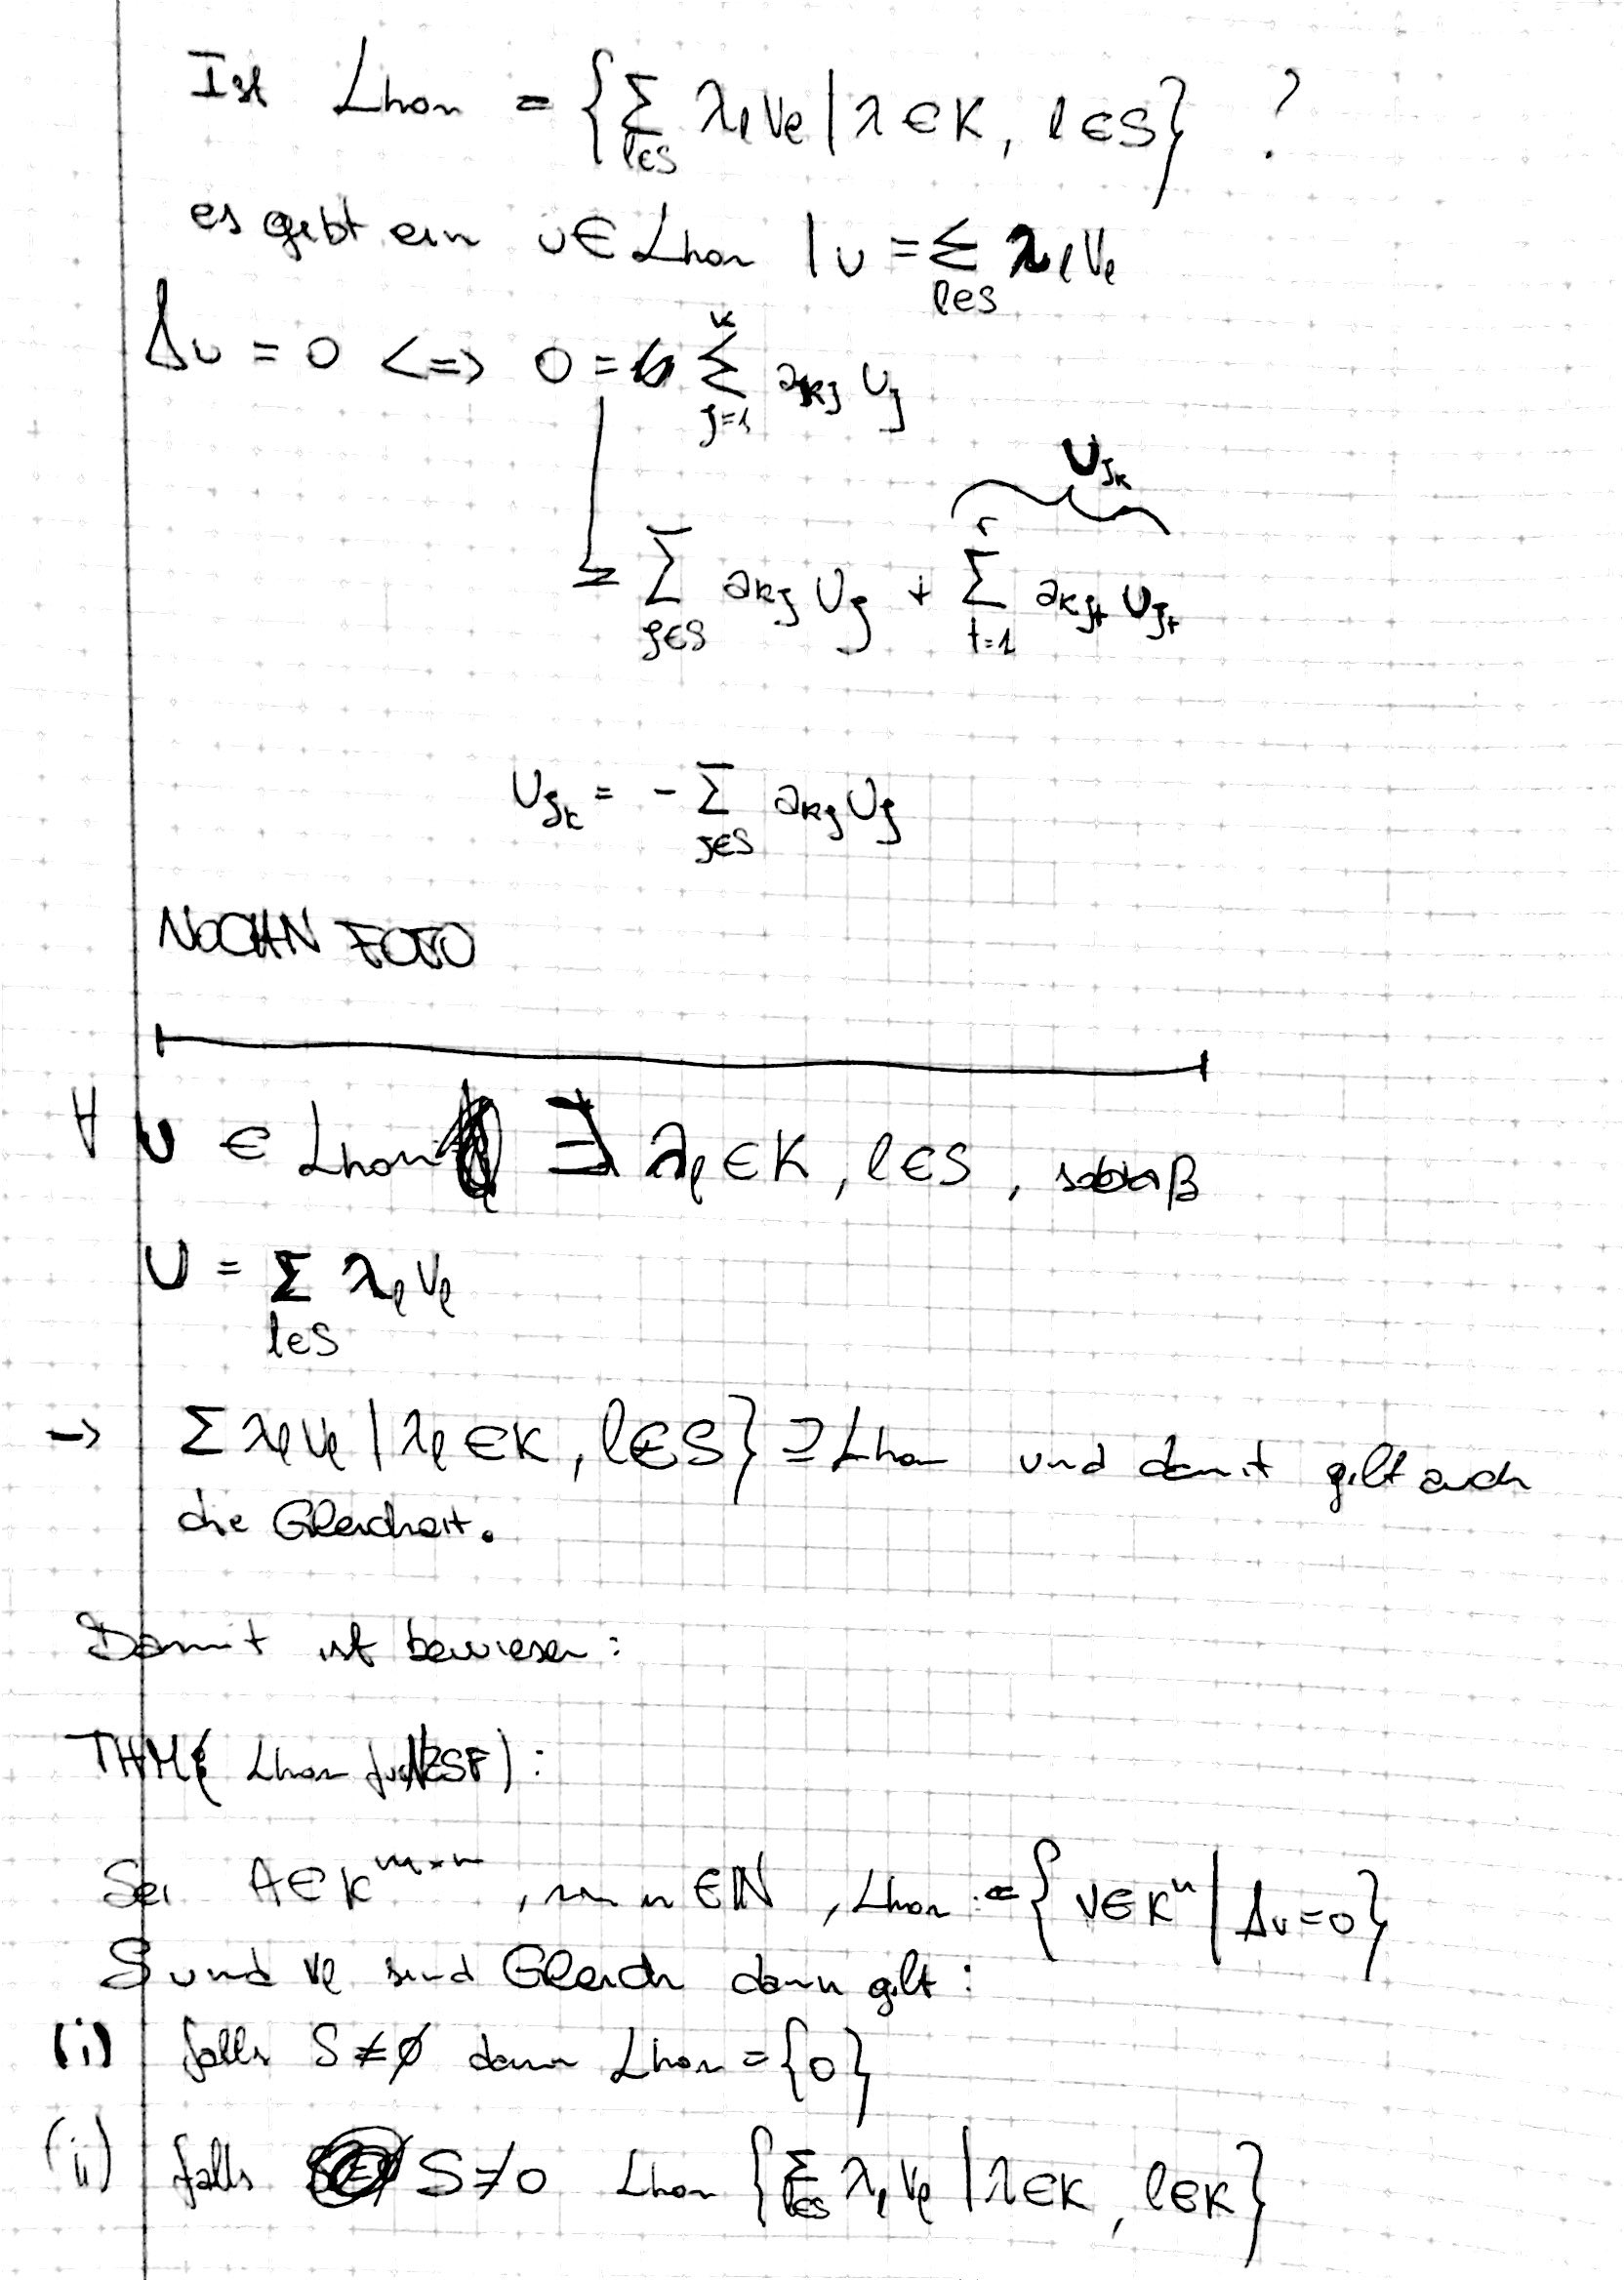 Ist Lhom = {∑_{l∈S} λ_l v_l | λ ∈ K, l ∈ S} ?
es gibt ein u ∈ Lhom | u = ∑_{l∈S} λ_l v_l
Au = 0 <=> 0 = ∑_{j=1}^{n} a_{kj} u_j
= ∑_{j∈S} a_{kj} u_j + ∑_{t=1}^{r} a_{kj_t} u_{j_t}
u_{j_k}
u_{j_k} = - ∑_{j∈S} a_{kj} u_j
NOCHN FOTO
∀ u ∈ Lhom ∃ λ_l ∈ K, l ∈ S, sodaß
u = ∑_{l∈S} λ_l v_l
-> ∑ λ_l v_l | λ_l ∈ K, l ∈ S} ⊇ Lhom und damit gilt auch
die Gleichheit.
Damit ist bewiesen:
THM( Lhom für NZSF):
Sei A ∈ K^{m×n}, m n ∈ ℕ, Lhom := {v ∈ K^n | Av = 0}
S und v_l sind Gleich dann gilt:
(i) falls S ≠ ∅ dann Lhom = {0}
(ii) falls S ≠ 0 Lhom {∑_{l∈S} λ_l v_l | λ ∈ K, l ∈ K}